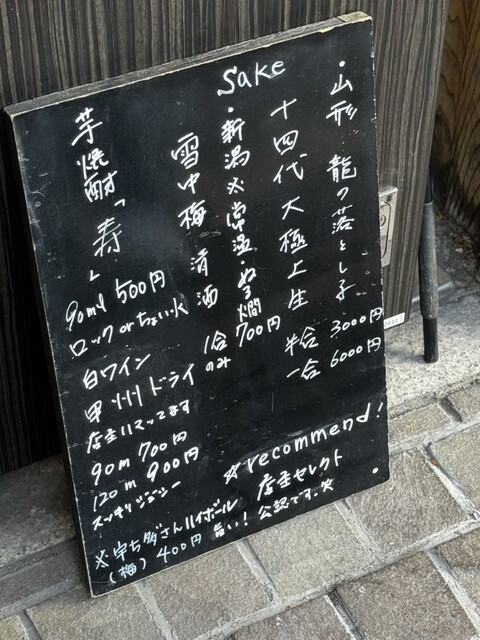 Sake
・山形 龍の落とし子
十四代 大極上生
半合 3000円
一合 6000円
・新潟 ※常温・ぬる燗
雪中梅 清酒
1合 700円
のみ
芋焼酎「寿」
90ml 500円
ロック or ちょい水
白ワイン
甲州 ドライ
店主ハマってます
90m 700円
120m 900円
スッキリジューシー
☆recommend!
店主セレクト
※宇ち多゛さんハイボール 旨い! 公認です。笑
(梅) 400円